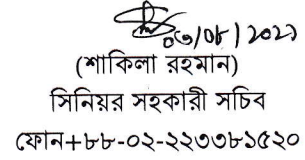 ০৩/০৮/২০২১
(শাকিলা রহমান)
সিনিয়র সহকারী সচিব
ফোন+৮৮-০২-২২৩৩৮১৫২০